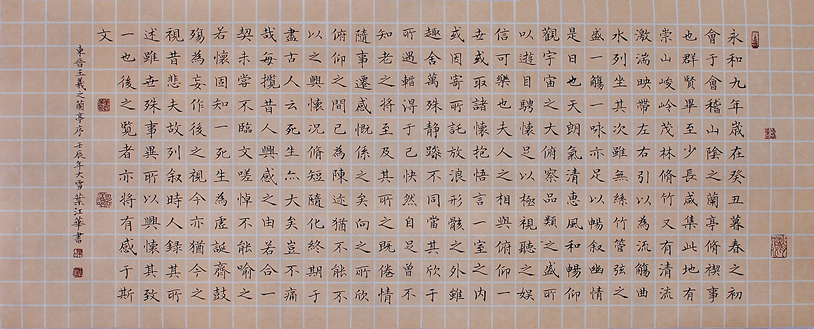 永和九年歲在癸丑暮春之初
會于會稽山陰之蘭亭脩禊事
也群賢畢至少長咸集此地有
崇山峻岭茂林脩竹又有清流
激湍映帶左右引以為流觴曲
水列坐其次雖無絲竹管弦之
盛一觴一咏亦足以暢叙幽情
是日也天朗氣清惠風和暢仰
觀宇宙之大俯察品類之盛所
以遊目騁懷足以極視聽之娛
信可樂也夫人之相與俯仰一
世或取諸懷抱悟言一室之内
或因寄所託放浪形骸之外雖
趣舍萬殊静躁不同當其欣于
所遇輒得于己快然自足曾不
知老之將至及其所之既倦情
隨事遷感慨係之矣向之所欣
俯仰之間已為陳迹猶不能不
以之興懷况脩短隨化終期于
盡古人云死生亦大矣豈不痛
哉每攬昔人興感之由若合一
契未嘗不臨文嗟悼不能喻之
若懷固知一死生為虛誕齊鼓
殤為妄作後之視今亦猶今之
視昔悲夫故列叙時人録其所
述雖世殊事異所以興懷其致
一也後之覧者亦將有感于斯
文
東晋王羲之蘭亭序壬辰年大雪葉江華書